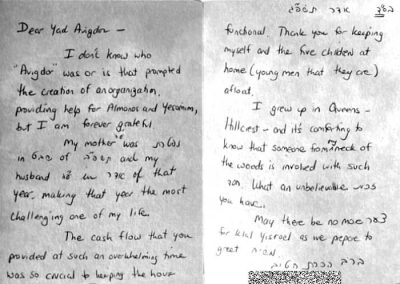 Dear Yad Avigdor –
I don't know who
"Avigdor" was or is that prompted
the creation of an organization
providing help for Almonos and Yesomim,
but I am forever grateful.
My mother was
של and my
husband of that
year, making that year the most
challenging one of my life.
The cash flow that you
provided at such an overwhelming time
was so crucial to keeping the house
בס"ד
אדר
functional. Thank you for keeping
myself and the five children at
home (young men that they are)
afloat.
I grew up in Queens –
Hillcrest – and it's comforting to
know that someone from neck of
the woods is involved with such
חסד. What an unbelievable זכות
you have.
May there be no more צער
for klal Yisroel as we prepare to
greet משיח
ברב הכרת הטוב